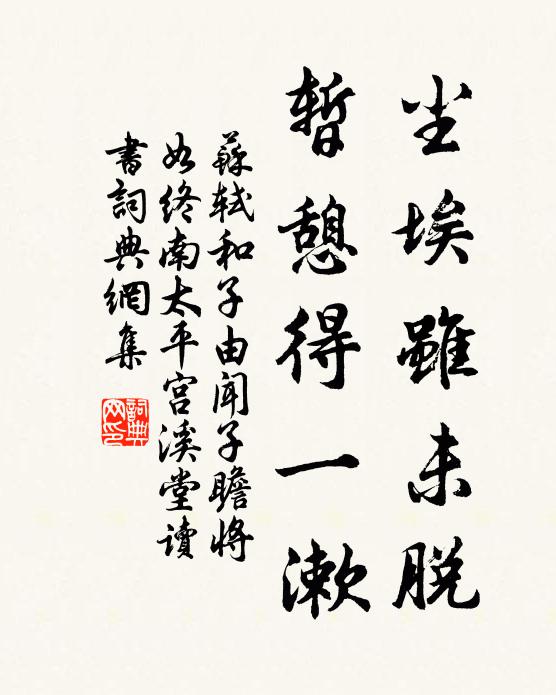 尘埃雖未脱
暫憩得一漱
蘇軾和子由闻子瞻將
如终南太平宫溪堂讀
書詞典網集
詞典網印